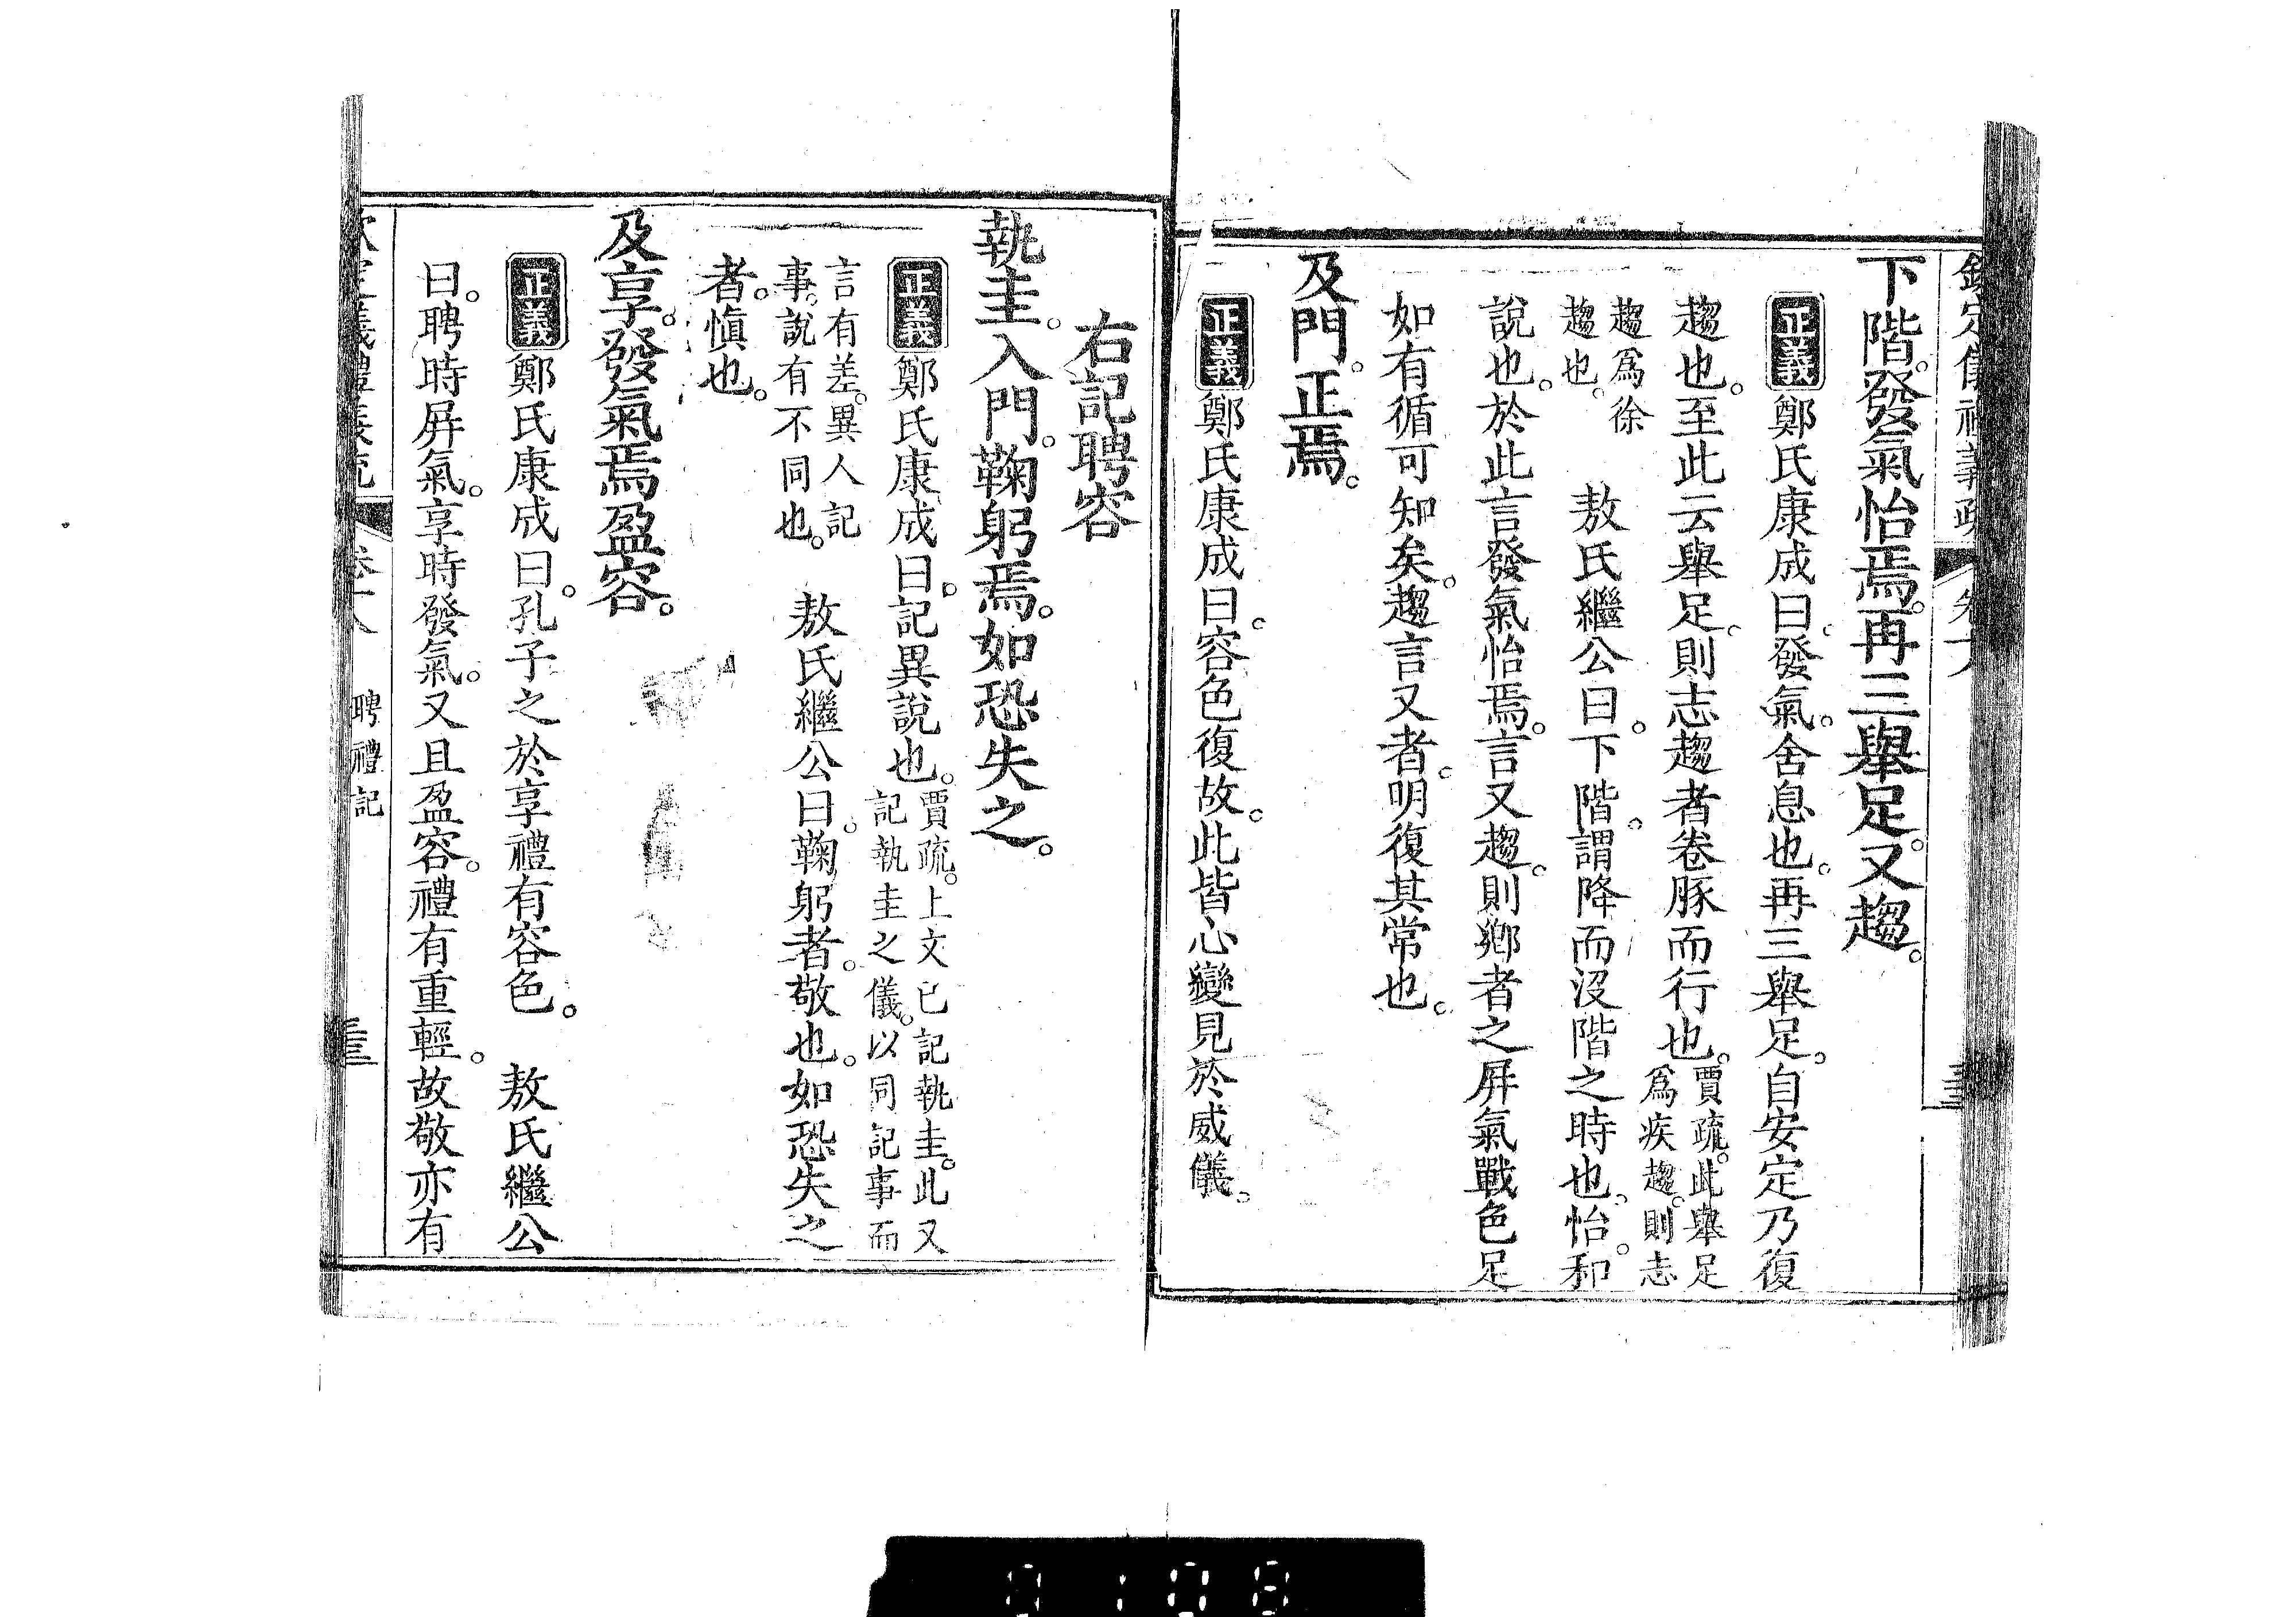 下階。發氣怡焉。再三舉足。又趨。
正義鄭氏康成曰。發氣。舍息也。再三舉足。自安定乃復
趨也。至此云舉足。則志趨者卷豚而行也。賈疏。此舉足爲疾趨。則志
趨爲徐趨也。 敖氏繼公曰。下階。謂降而沒階之時也。怡。和
說也。於此言發氣怡焉。言又趨。則鄉者之屛氣戰色足
如有循可知矣。趨言又者。明復其常也。
及門。正焉。
正義鄭氏康成曰。容色復故。此皆心變見於威儀。
右記聘容
執圭。入門。鞠躬焉。如恐失之。
正義鄭氏康成曰。記異說也。賈疏。上文已記執圭。此又記執圭之儀。以同記事而
言有差。異人記事。說有不同也。 敖氏繼公曰。鞠躬者。敬也。如恐失之
者。愼也。
及享。發氣焉盈容。
正義鄭氏康成曰。孔子之於享禮有容色。 敖氏繼公
曰。聘時屛氣。享時發氣。又且盈容。禮有重輕。故敬亦有
聘禮記
0108